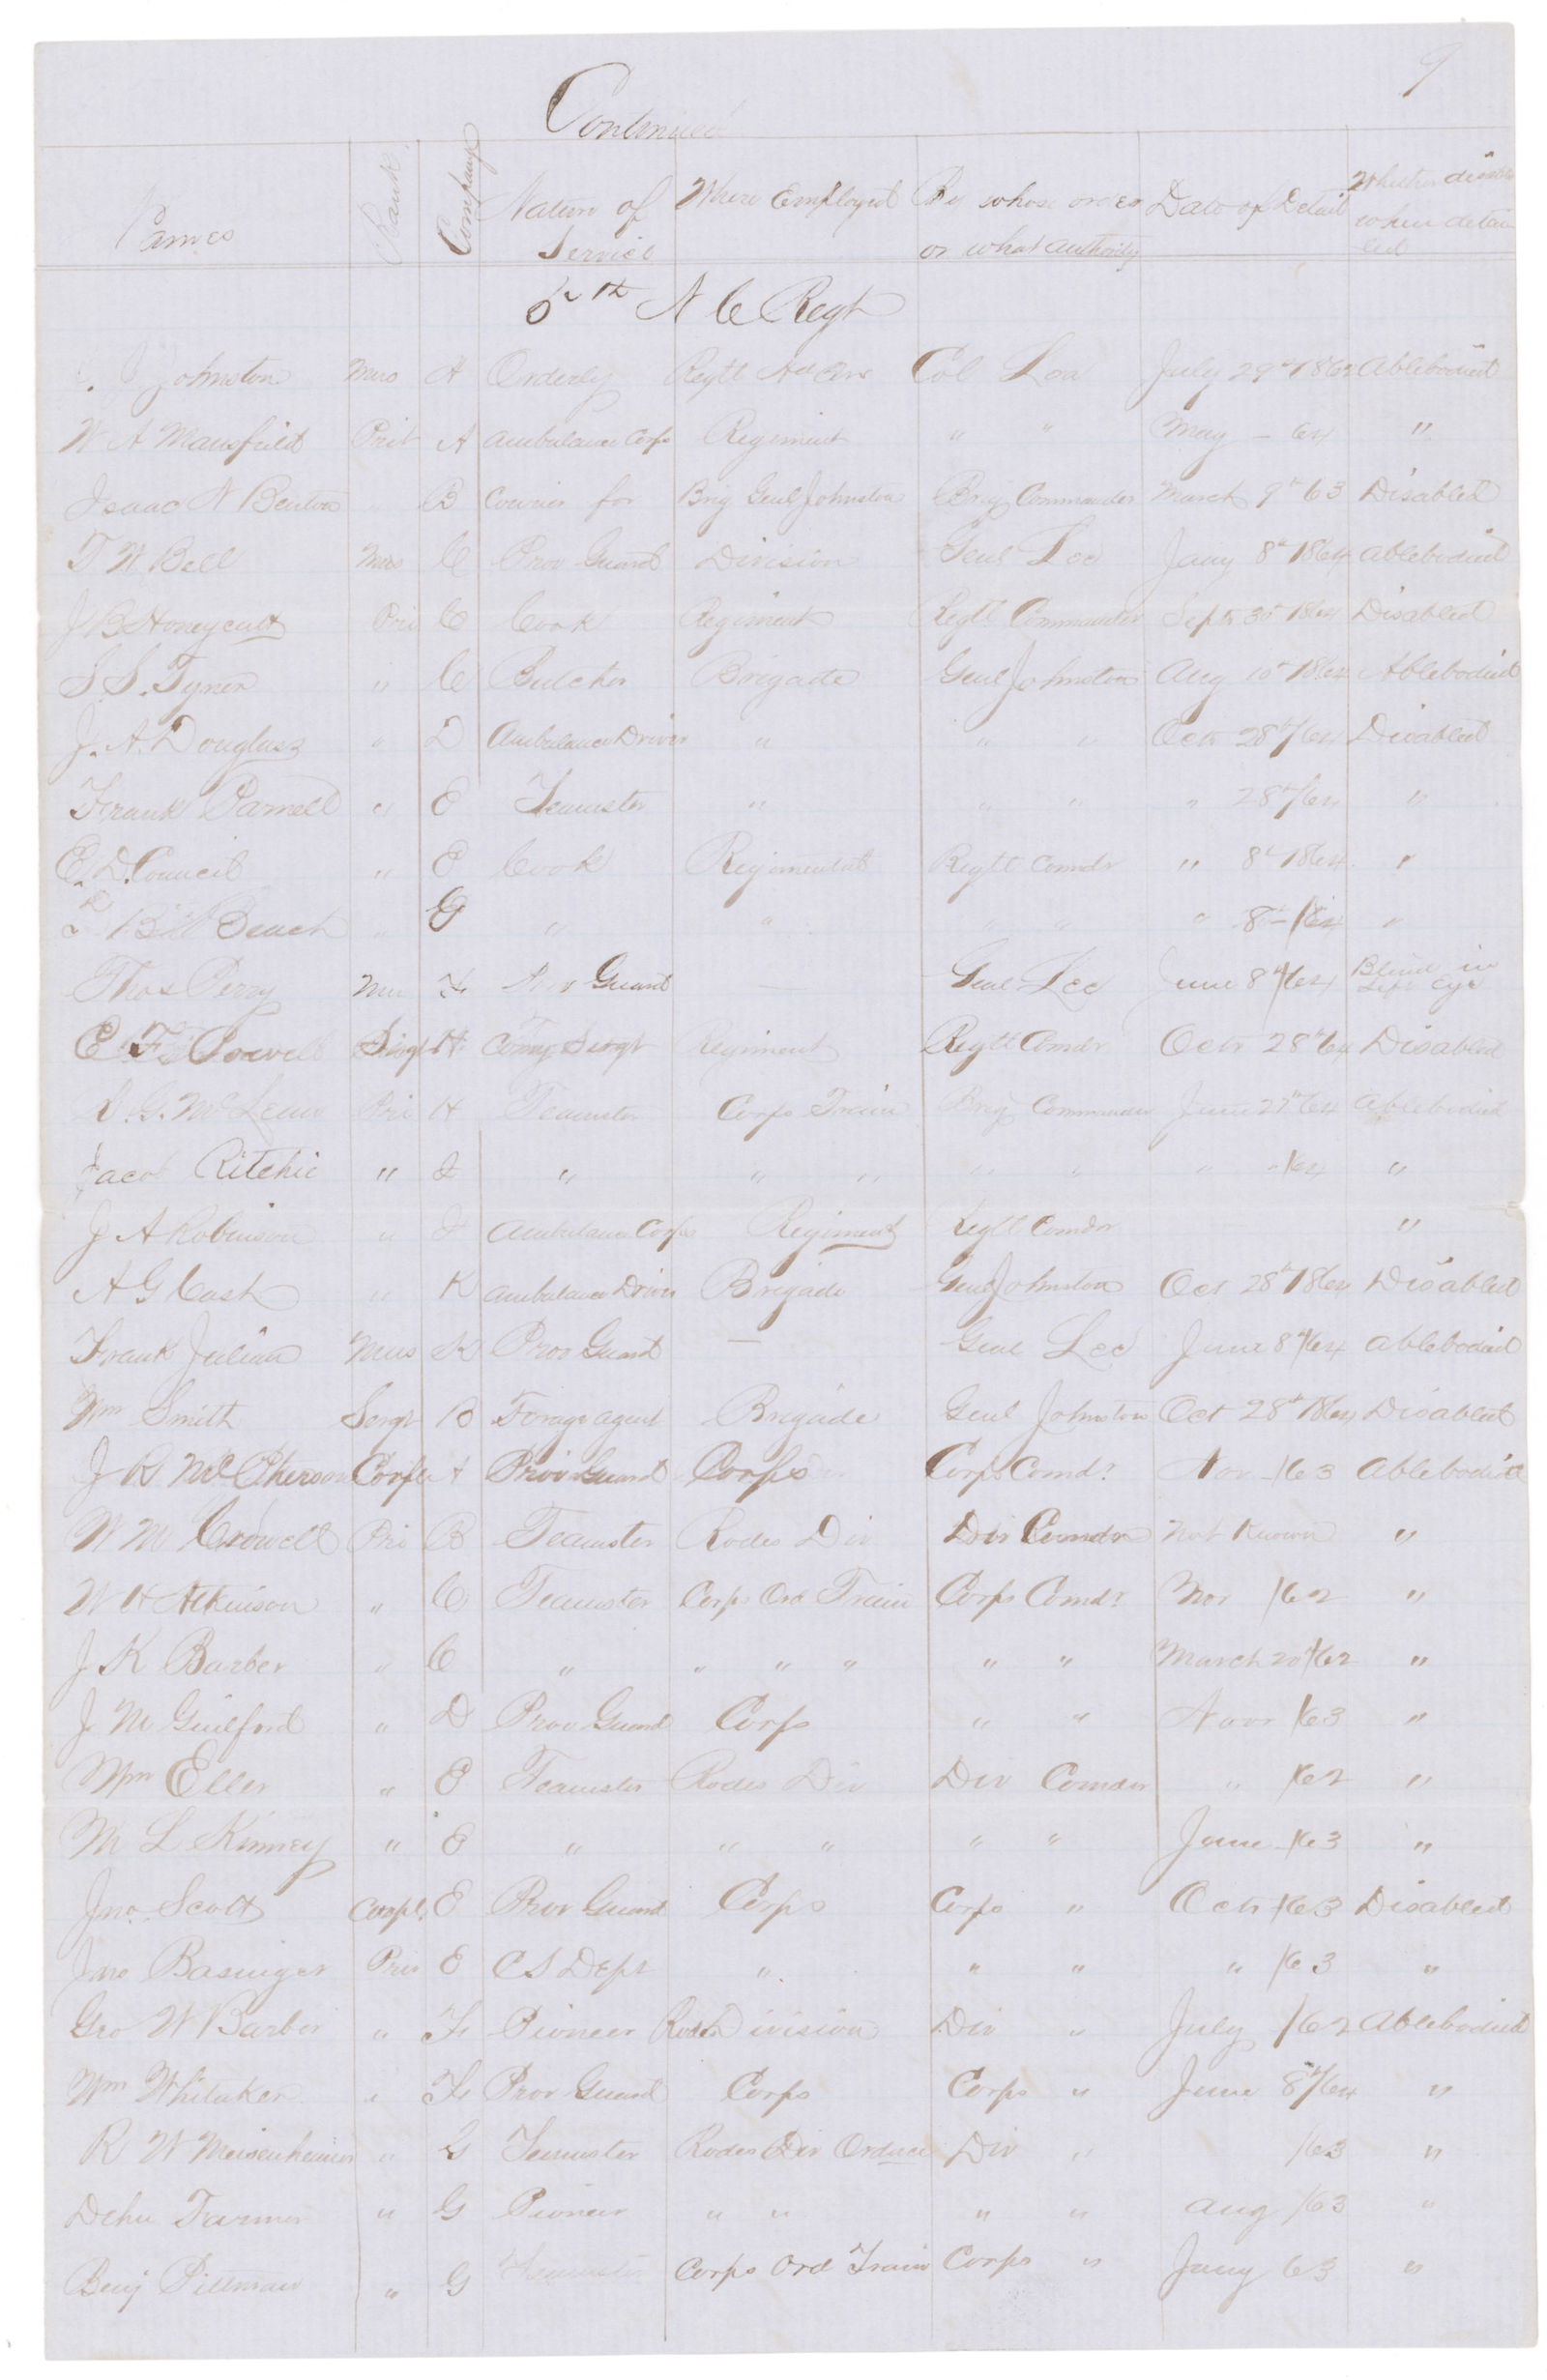 9
Continued
Names Rank Company Nature of Service Where Employed By whose order or what authority Date of Detail Whether disabled when detailed
5th N C Regt
J Johnston Mus A Orderly Regtl Col July 29th 1862 Ablebodied
W A Mansfield Privt A Ambulance Corps Regiment " " May – 64 "
Isaac N Benton " B Courier for Brig Genl Johnston Brig Commander March 9th 63 Disabled
T W Bell Mus C Prov Guard Division Genl Lee Jany 8th 1864 Ablebodied
J B Honeycutt Pri C Cook Regiment Regtl Commander Sept 30 1864 Disabled
S. S. Tyner " C Butcher Brigade Genl Johnston Aug 10th 1864 Ablebodied
J. A. Douglass " D Ambulance Driver " " " Oct 28th/64 Disabled
Frank Parnell " E Teamster " " " " 28th/64 "
E. D. Council " E Cook Regimental Regtl Comdr " 8th 1864 "
B W Beach " G " " " " " 8th /64 "
Thos Perry Mus F Prov Guard — Genl Lee June 8th/64 Blind in Left Eye
E F Powell Sergt H Comy Sergt Regiment Regtl Comdr Oct 28th 64 Disabled
D. G. McLean Pri H Teamster Corps Train Brig Commander June 64 Ablebodied
Jacob Ritchie " I " " " " " " /64 "
J A Robinson " I Ambulance Corps Regiment Regtl Comdr "
A G Cash " K Ambulance Driver Brigade Genl Johnston Oct 28th 1864 Disabled
Frank Julian Mus K Prov Guard — Genl Lee June 8th/64 Ablebodied
Wm Smith Sergt B Forage agent Brigade Genl Johnston Oct 28th 1864 Disabled
J R McPherson Corpl A Prov Guard Corps Corps Comdr Nov – /63 Ablebodied
W M Crowell Pri B Teamster Rodes Div Div Comdr Not Known "
W H Atkinson " C Teamster Corps Ord Train Corps Comdr Nov /62 "
J K Barber " C " " " " " " March 20th/62 "
J M Guilford " D Prov Guard Corps " " Novr /63 "
Wm Eller " E Teamster Rodes Div Div Comdr " /62 "
M L Kinney " E " " " " " June /63 "
Jno. Scott Corpl. E Prov Guard Corps Corps " Oct /63 Disabled
Jno Basinger Priv E C S Dept " " " " /63 "
Geo W Barber " F Pioneer Rodes Division Div " July /62 Ablebodied
Wm Whitaker " F Prov Guard Corps Corps " June 8th/64 "
R W Meisenheimer " G Teamster Rodes Div Ordnce Div " /63 "
Dehu Farmer " G Pioneer " " " " Aug /63 "
Benj Pillman " G Teamster Corps Ord Train Corps " Jany 63 "